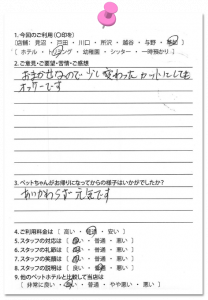 1. 今回のご利用(○印を)
[店舗: 見沼 ・ 戸田 ・ 川口 ・ 所沢 ・ 越谷 ・ 与野 ・
[ ホテル ・ トリミング ・ 幼稚園 ・ シッター ・ 一時預かり ]
2. ご意見・ご要望・苦情・ご感想
おまかせなので 少し変わった カットにしても
オッケーです
3. ペットちゃんがお帰りになってからの様子はいかがでしたか?
あいかわらず 元気です
4. ご利用料金は [ 高い ・ 普通 ・ 安い ]
5. スタッフの対応は [ 良い ・ 普通 ・ 悪い ]
6. スタッフの礼節は [ 良い ・ 普通 ・ 悪い ]
7. スタッフの笑顔は [ 良い ・ 普通 ・ 悪い ]
8. スタッフの説明は [ 良い ・ 普通 ・ 悪い ]
9. 他のペットホテルと比較して当店は
[ 非常に良い ・ 良い ・ 普通 ・ やや悪い ・ 悪い ]